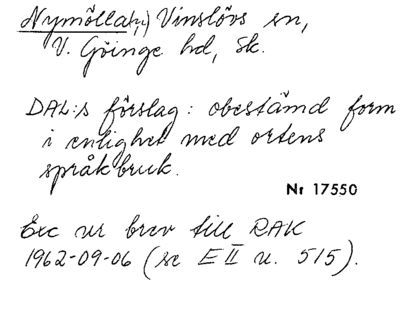 Nymölla(n) Vinslövs sn,
V. Göinge hd, Sk.
DAL:s förslag: obestämd form
i enlighet med ortens
språkbruk.
Nr 17550
Exc ur brev till RAK
1962-09-06 (se E II u. 515).